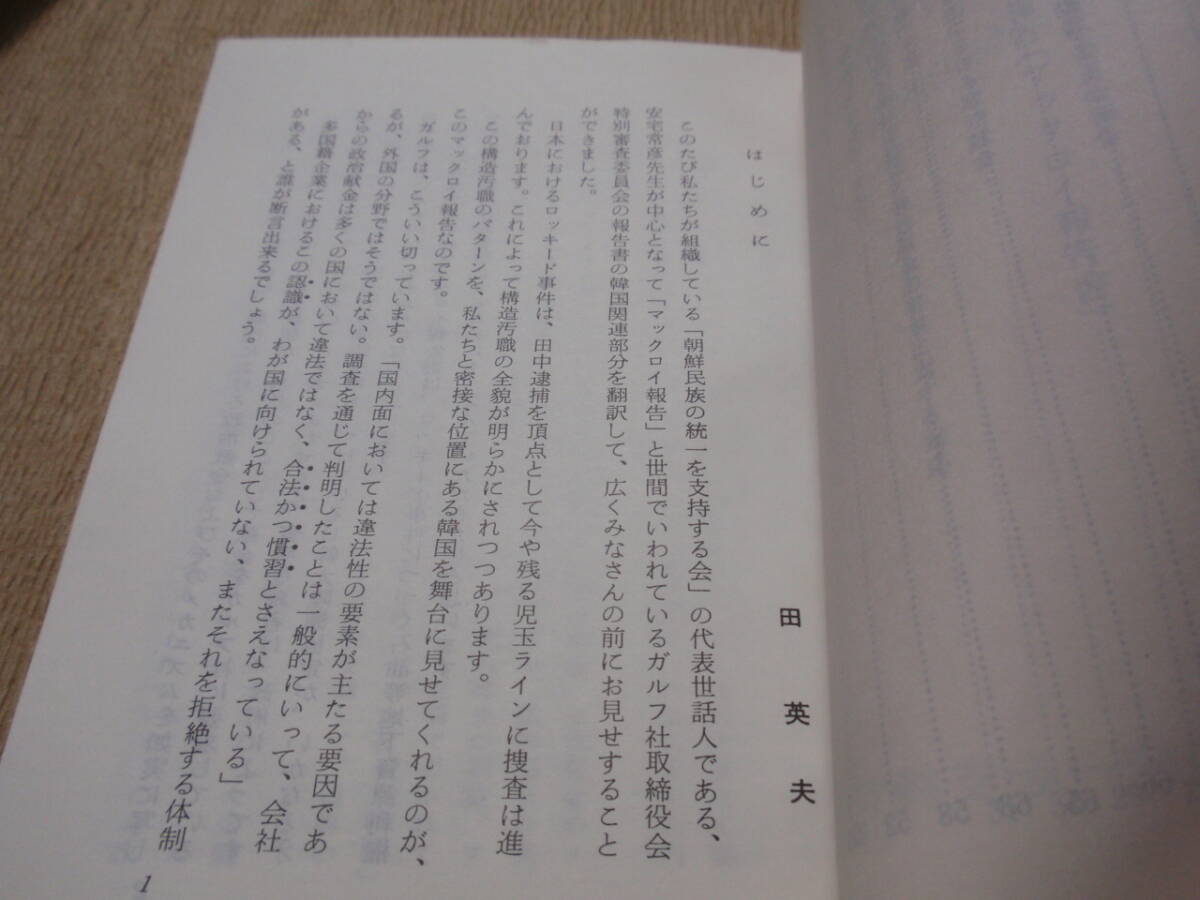 はじめに
田英夫
このたび私たちが組織している「朝鮮民族の統一を支持する会」の代表世話人である、
安宅常彦先生が中心となって「マックロイ報告」と世間でいわれているガルフ社取締役会
特別審査委員会の報告書の韓国関連部分を翻訳して、広くみなさんの前にお見せすること
ができました。
日本におけるロッキード事件は、田中逮捕を頂点として今や残る児玉ラインに捜査は進
んでおります。これによって構造汚職の全貌が明らかにされつつあります。
この構造汚職のパターンを、私たちと密接な位置にある韓国を舞台に見せてくれるのが、
このマックロイ報告なのです。
ガルフは、こういい切っています。「国内面においては違法性の要素が主たる要因であ
るが、外国の分野ではそうではない。調査を通じて判明したことは一般的にいって、会社
からの政治献金は多くの国において違法ではなく、合法かつ慣習とさえなっている」
多国籍企業におけるこの認識が、わが国に向けられていない、またそれを拒絶する体制
がある、と誰が断言出来るでしょう。
1
52
58
60
65